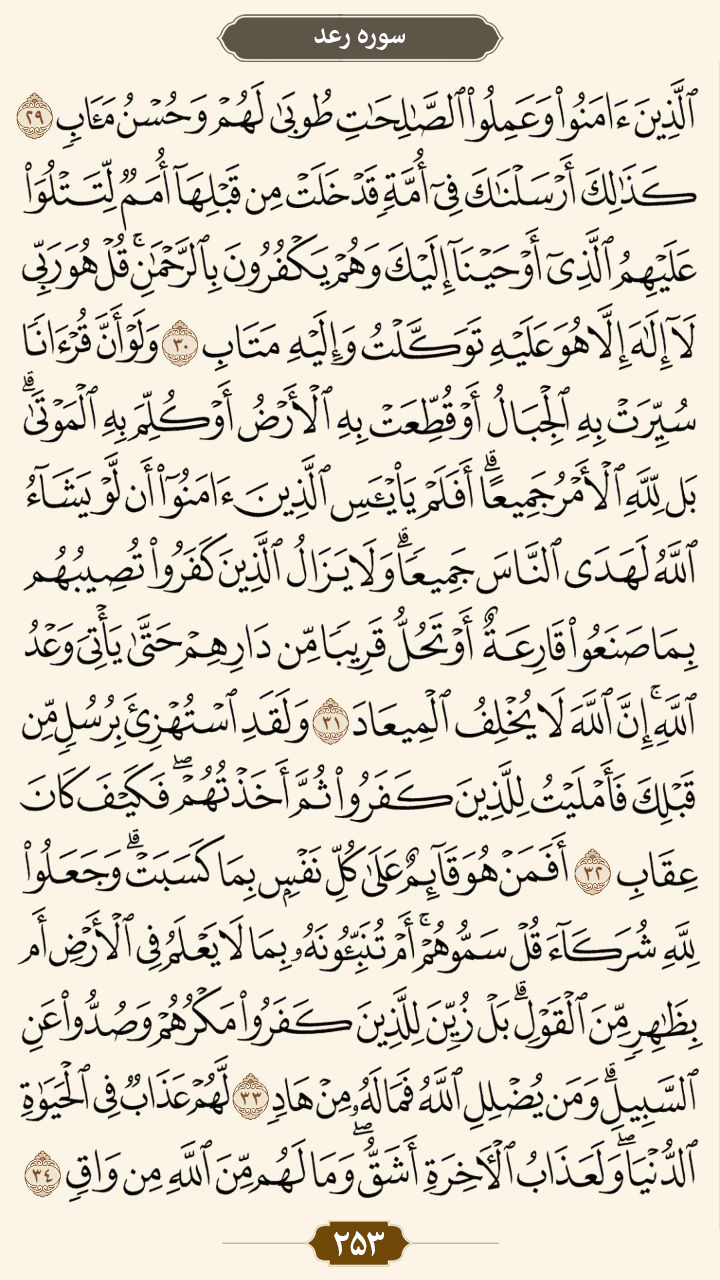 سوره رعد
ٱلَّذِينَ ءَامَنُواْ وَعَمِلُواْ ٱلصَّٰلِحَٰتِ طُوبَىٰ لَهُمۡ وَحُسۡنُ مَـَٔابٖ ٢٩
كَذَٰلِكَ أَرۡسَلۡنَٰكَ فِيٓ أُمَّةٖ قَدۡ خَلَتۡ مِن قَبۡلِهَآ أُمَمٞ لِّتَتۡلُوَاْ
عَلَيۡهِمُ ٱلَّذِيٓ أَوۡحَيۡنَآ إِلَيۡكَ وَهُمۡ يَكۡفُرُونَ بِٱلرَّحۡمَٰنِۚ قُلۡ هُوَ رَبِّي
لَآ إِلَٰهَ إِلَّا هُوَ عَلَيۡهِ تَوَكَّلۡتُ وَإِلَيۡهِ مَتَابِ ٣٠ وَلَوۡ أَنَّ قُرۡءَانٗا
سُيِّرَتۡ بِهِ ٱلۡجِبَالُ أَوۡ قُطِّعَتۡ بِهِ ٱلۡأَرۡضُ أَوۡ كُلِّمَ بِهِ ٱلۡمَوۡتَىٰۗ
بَل لِّلَّهِ ٱلۡأَمۡرُ جَمِيعًاۗ أَفَلَمۡ يَاْيۡـَٔسِ ٱلَّذِينَ ءَامَنُوٓاْ أَن لَّوۡ يَشَآءُ
ٱللَّهُ لَهَدَى ٱلنَّاسَ جَمِيعٗاۗ وَلَا يَزَالُ ٱلَّذِينَ كَفَرُواْ تُصِيبُهُم
بِمَا صَنَعُواْ قَارِعَةٌ أَوۡ تَحُلُّ قَرِيبٗا مِّن دَارِهِمۡ حَتَّىٰ يَأۡتِيَ وَعۡدُ
ٱللَّهِۚ إِنَّ ٱللَّهَ لَا يُخۡلِفُ ٱلۡمِيعَادَ ٣١ وَلَقَدِ ٱسۡتُهۡزِئَ بِرُسُلٖ مِّن
قَبۡلِكَ فَأَمۡلَيۡتُ لِلَّذِينَ كَفَرُواْ ثُمَّ أَخَذۡتُهُمۡۖ فَكَيۡفَ كَانَ
عِقَابِ ٣٢ أَفَمَنۡ هُوَ قَآئِمٌ عَلَىٰ كُلِّ نَفۡسِۭ بِمَا كَسَبَتۡۗ وَجَعَلُواْ
لِلَّهِ شُرَكَآءَ قُلۡ سَمُّوهُمۡۚ أَمۡ تُنَبِّـُٔونَهُۥ بِمَا لَا يَعۡلَمُ فِي ٱلۡأَرۡضِ أَم
بِظَٰهِرٖ مِّنَ ٱلۡقَوۡلِۗ بَلۡ زُيِّنَ لِلَّذِينَ كَفَرُواْ مَكۡرُهُمۡ وَصُدُّواْ عَنِ
ٱلسَّبِيلِۗ وَمَن يُضۡلِلِ ٱللَّهُ فَمَا لَهُۥ مِنۡ هَادٖ ٣٣ لَّهُمۡ عَذَابٞ فِي ٱلۡحَيَوٰةِ
ٱلدُّنۡيَاۖ وَلَعَذَابُ ٱلۡأٓخِرَةِ أَشَقُّۖ وَمَا لَهُم مِّنَ ٱللَّهِ مِن وَاقٖ ٣٤
۲۵۳